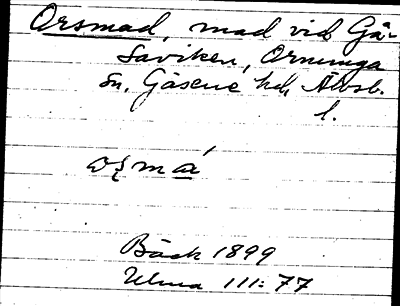 Orsmad, mad vid Gå-
saviken, Ornunga
sn, Gäsene hd, Älvsb.
l.
må
Bäck 1899
Ulma 111:77